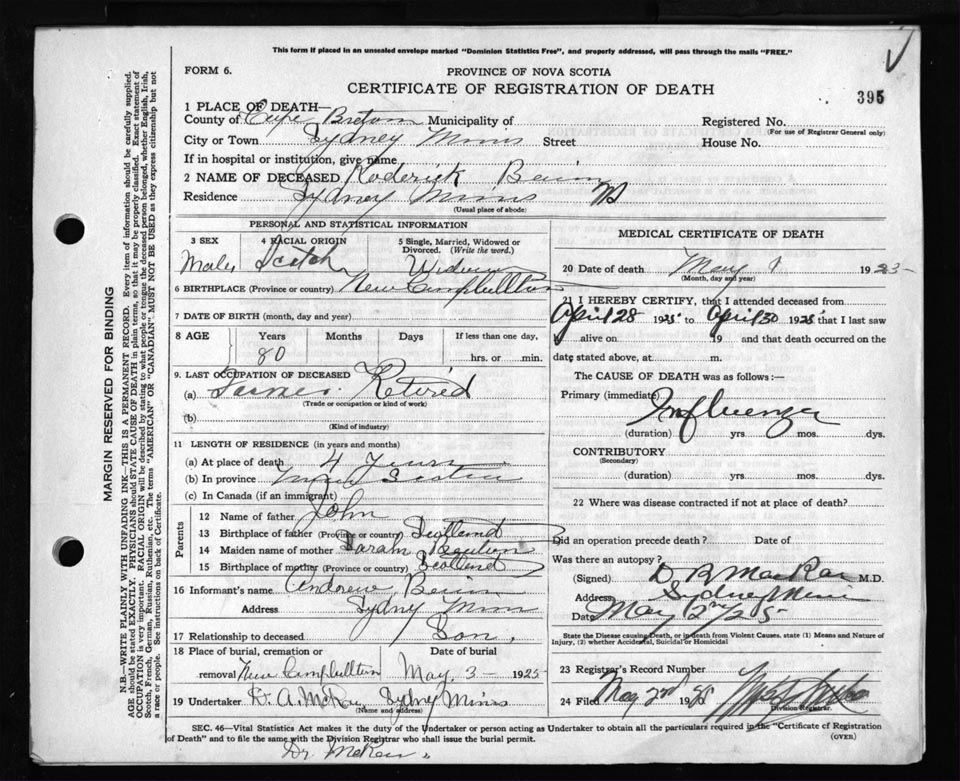 This form if placed in an unsealed envelope marked "Dominion Statistics Free", and properly addressed, will pass through the mails "FREE."
FORM 6.
PROVINCE OF NOVA SCOTIA
CERTIFICATE OF REGISTRATION OF DEATH
395
1 PLACE OF DEATH—
County of Cape Breton Municipality of
Registered No.
(For use of Registrar General only)
City or Town Sydney Mines Street House No.
If in hospital or institution, give name
2 NAME OF DECEASED Roderick
Residence Sydney Mines NS
(Usual place of abode)
PERSONAL AND STATISTICAL INFORMATION
3 SEX 4 RACIAL ORIGIN 5 Single, Married, Widowed or Divorced. (Write the word.)
Male Scotch
6 BIRTHPLACE (Province or country) New Campbellton
7 DATE OF BIRTH (month, day and year)
8 AGE Years Months Days If less than one day,
80 hrs. or min.
9. LAST OCCUPATION OF DECEASED
(a) Farmer Retired
(Trade or occupation or kind of work)
(b)
(Kind of industry)
11 LENGTH OF RESIDENCE (in years and months)
(a) At place of death 4 Years
(b) In province Nova Scotia
(c) In Canada (if an immigrant)
Parents
12 Name of father John
13 Birthplace of father (Province or country) Scotland
14 Maiden name of mother Sarah
15 Birthplace of mother (Province or country) Scotland
16 Informant's name Andrew
Address Sydney Mines
17 Relationship to deceased Son
18 Place of burial, cremation or removal Date of burial
New Campbellton May. 3 1925
19 Undertaker D. A. McRae Sydney Mines
(Name and address)
MEDICAL CERTIFICATE OF DEATH
20 Date of death May 1 192
(Month, day and year)
21 I HEREBY CERTIFY, that I attended deceased from
April 28 1925 to April 30 1925 that I last saw
h alive on 19 and that death occurred on the
date stated above, at m.
The CAUSE OF DEATH was as follows:—
Primary (immediate) Influenza
(duration) yrs. mos. dys.
CONTRIBUTORY
(Secondary)
(duration) yrs. mos. dys.
22 Where was disease contracted if not at place of death?
Did an operation precede death? Date of
Was there an autopsy?
(Signed) D R MacRae M.D.
Address Sydney Mines
Date May 2nd/25
State the Disease causing Death, or in death from Violent Causes, state (1) Means and Nature of Injury, (2) whether Accidental, Suicidal or Homicidal
23 Registrar's Record Number
24 Filed May 2nd 1925
Division Registrar.
SEC. 46—Vital Statistics Act makes it the duty of the Undertaker or person acting as Undertaker to obtain all the particulars required in the "Certificate of Registration
of Death" and to file the same with the Division Registrar who shall issue the burial permit.
(OVER)
MARGIN RESERVED FOR BINDING
N.B.—WRITE PLAINLY WITH UNFADING INK—THIS IS A PERMANENT RECORD. Every item of information should be carefully supplied.
AGE should be stated EXACTLY. PHYSICIANS should STATE CAUSE OF DEATH in plain terms, so that it may be properly classified. Exact statement of
OCCUPATION is very important. RACIAL ORIGIN will be described by stating to what people or tongue the deceased person belonged, whether English, Irish,
Scotch, French, German, Russian, Ruthenian, etc. The terms "AMERICAN" or "CANADIAN" MUST NOT BE USED as they express citizenship but not
a race or people. See instructions on back of Certificate.